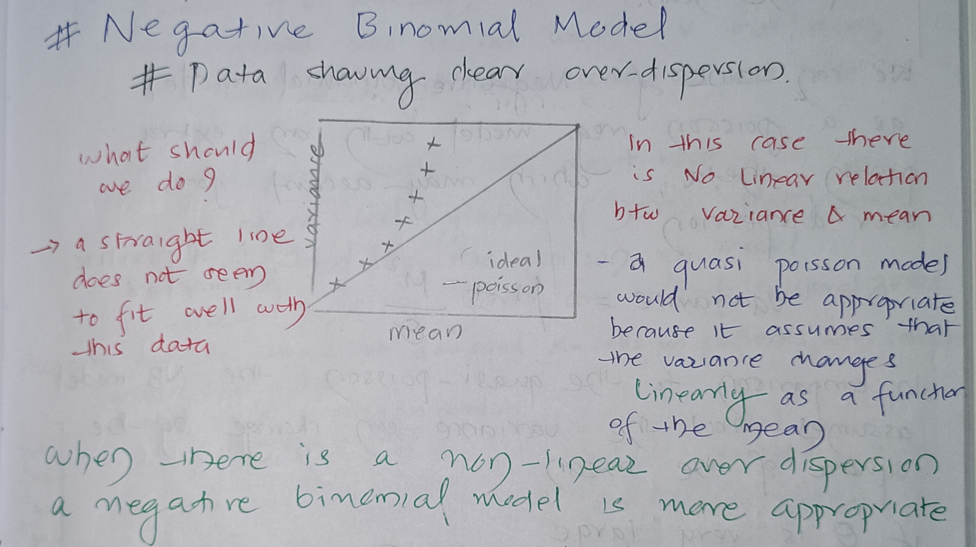 # Negative Binomial Model
# Data showing clear over-dispersion.
what should
we do?
→ a straight line
does not seem
to fit well with
this data
variance
ideal
— poisson
mean
In this case there
is No Linear relation
btw variance & mean
- a quasi poisson model
would not be appropriate
because it assumes that
the variance changes
linearly as a function
of the mean
when there is a non-linear over dispersion
a negative binomial model is more appropriate